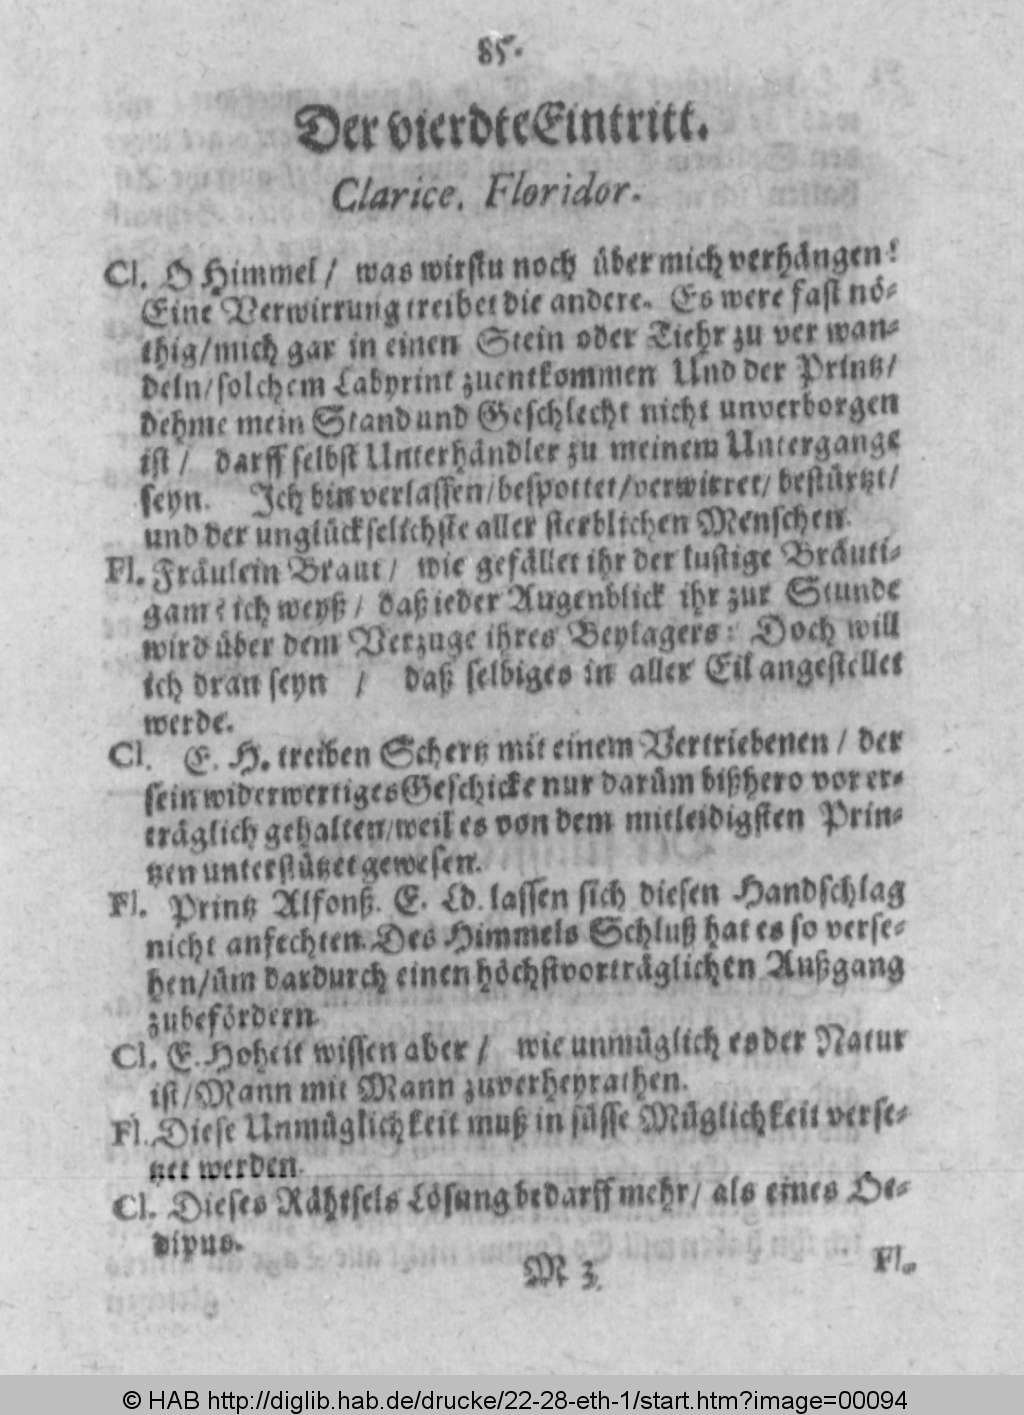 85.
Der vierdte Eintritt.
Clarice. Floridor.
Cl. O Himmel / was wirstu noch über mich verhängen!
Eine Verwirrung treibet die andere. Es were fast nö-
thig/mich gar in einen Stein oder Tiehr zu ver wan-
deln/solchem Labyrint zuentkommen Und der Printz/
dehme mein Stand und Geschlecht nicht unverborgen
ist / darff selbst Unterhändler zu meinem Untergange
seyn. Ich bin verlassen/bespottet/verwirret/ bestürtzt/
und der unglückselichste aller sterblichen Menschen.
Fl. Fräulein Braut / wie gefället ihr der lustige Bräuti-
gam? ich weyß / daß ieder Augenblick ihr zur Stunde
wird über dem Verzuge ihres Beylagers: Doch will
ich dran seyn / daß selbiges in aller Eil angestellet
werde.
Cl. E. H. treiben Schertz mit einem Vertriebenen / der
sein widerwertiges Geschicke nur darüm bißhero vor er-
träglich gehalten/weil es von dem mitleidigsten Prin-
tzen unterstützet gewesen.
Fl. Printz Alfonß. E. Ld. lassen sich diesen Handschlag
nicht anfechten. Des Himmels Schluß hat es so verse-
hen/üm dardurch einen höchstvorträglichen Außgang
zubefördern.
Cl. E. Hoheit wissen aber / wie unmüglich es der Natur
ist/Mann mit Mann zuverheyrathen.
Fl. Diese Unmüglichkeit muß in süsse Müglichkeit verse-
tzet werden.
Cl. Dieses Rähtsels Lösung bedarff mehr/ als eines Oe-
dipus.
M 3. Fl.
© HAB http://diglib.hab.de/drucke/22-28-eth-1/start.htm?image=00094